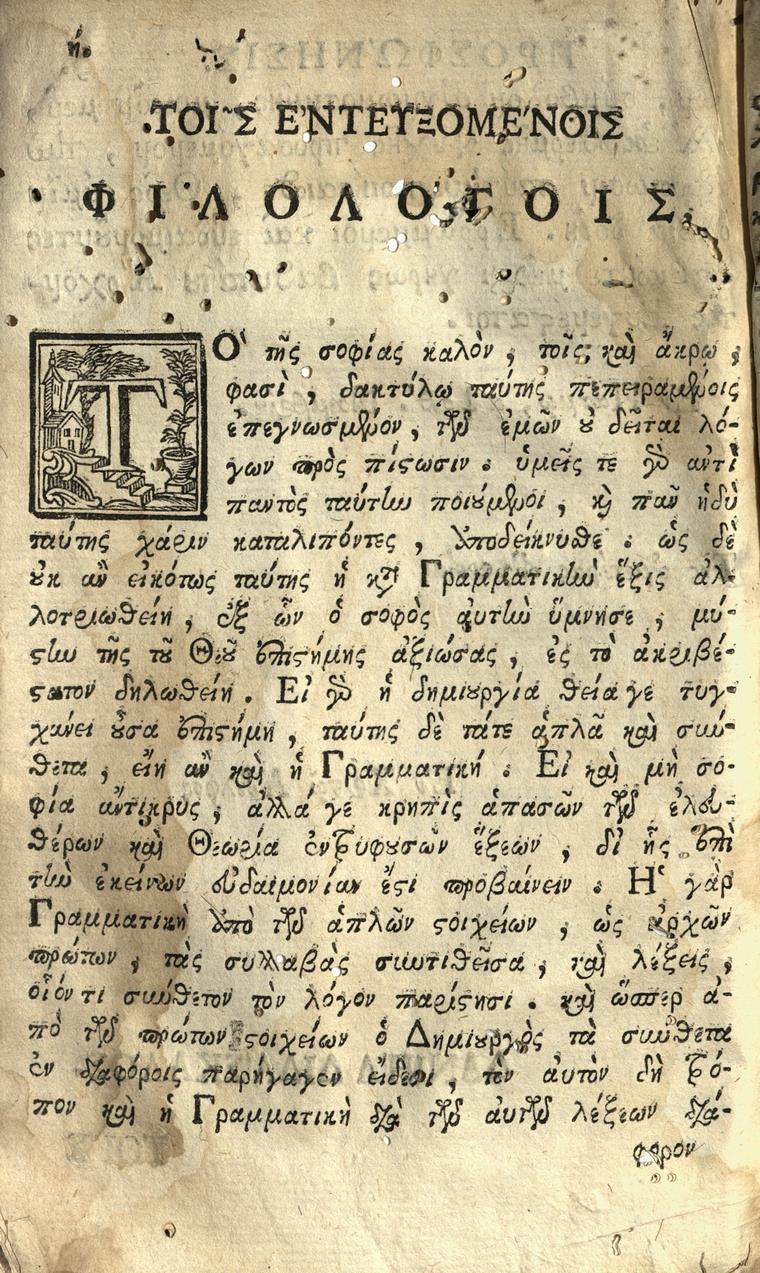 η.
ΤΟΙ͂Σ ἘΝΤΕΥΞΟΜΈΝΟΙΣ
ΦΙΛΟΛΟΓΟΙΣ.
ΤῸ τῆς σοφίας καλὸν, τοῖς, καὶ ἄκρῳ,
φασὶ, δακτύλῳ ταύτης πεπειραμένοις
ἐπεγνωσμένον, τῶν ἐμῶν οὐ δεῖται λό-
γων πρὸς πίστωσιν. ὑμεῖς τε γὰρ ἀντὶ
παντὸς ταύτην ποιούμενοι, καὶ πᾶν ἡδὺ
ταύτης χάριν καταλιπόντες, ὑποδείκνυθε. ὡς δὲ
οὐκ ἂν εἰκότως ταύτης ἡ κατὰ Γραμματικὴν ἕξις ἀλ-
λοτριωθείη, ἐξ ὧν ὁ σοφὸς αὐτὴν ὕμνησε, μύ-
στιν τῆς τοῦ Θεοῦ ἐπιστήμης ἀξιώσας, ἐς τὸ ἀκριβέ-
στατον δηλωθείη. Εἰ γὰρ ἡ δημιουργία θεία γε τυγ-
χάνει οὖσα ἐπιστήμη, ταύτης δὲ τάτε ἁπλᾶ καὶ σύν-
θετα, εἴη ἂν καὶ ἡ Γραμματική. Εἰ καὶ μὴ σο-
φία ἄντικρυς, ἀλλά γε κρηπὶς ἁπασῶν τῶν ἐλευ-
θέρων καὶ Θεωρία ἐντρυφουσῶν ἕξεων, δι' ἧς ἐπὶ
τὴν ἐκείνων εὐδαιμονίαν ἔστι προβαίνειν. Ἡ γὰρ
Γραμματικὴ ὑπὸ τῶν ἁπλῶν στοιχείων, ὡς ἀρχῶν
πρώτων, τὰς συλλαβὰς συντιθεῖσα, καὶ λέξεις,
οἷόν τι σύνθετον τὸν λόγον παρίστησι. καὶ ὥσπερ ἀ-
πὸ τῶν πρώτων στοιχείων ὁ Δημιουργὸς τὰ σύνθετα
ἐν διαφόροις παρήγαγεν εἴδεσι, τὸν αὐτὸν δὴ τρό-
πον καὶ ἡ Γραμματικὴ διὰ τῶν αὐτῶν λέξεων διά-
φορον